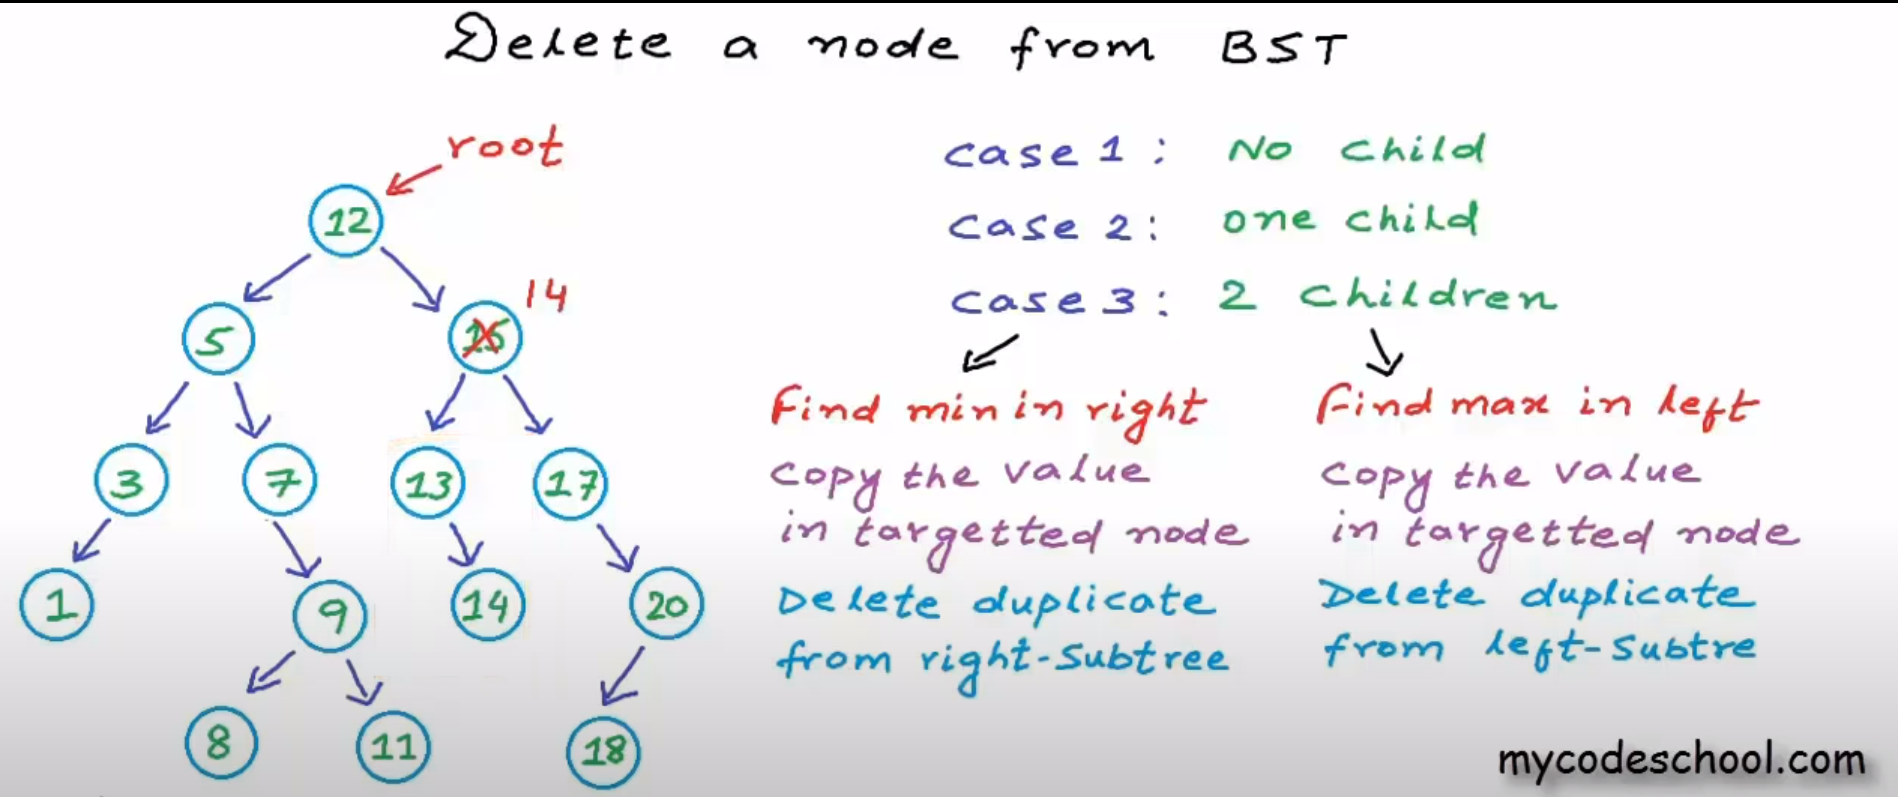 Delete a node from BST
root
12
14
5
15
3
7
13
17
1
9
14
20
8
11
18
case 1 : No child
case 2 : one child
case 3 : 2 children
Find min in right
copy the value
in targetted node
Delete duplicate
from right-subtree
Find max in left
copy the value
in targetted node
Delete duplicate
from left-subtre
mycodeschool.com